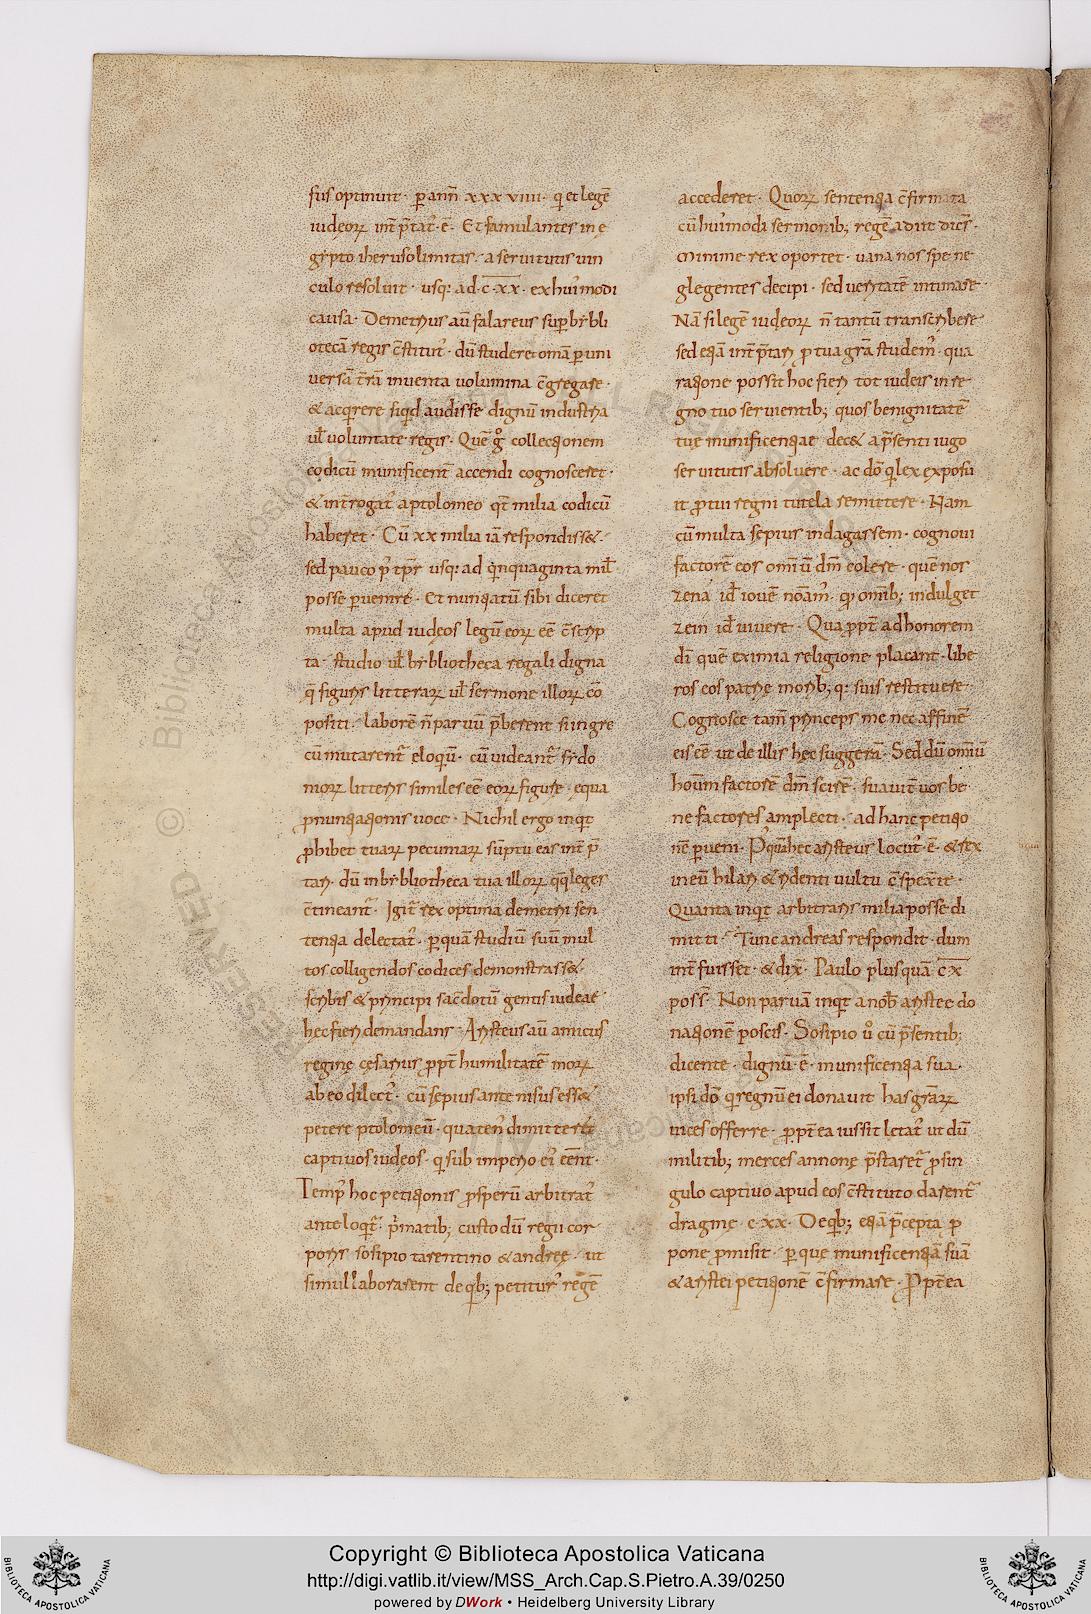 sus optinuit · p ann̄ xxxviiii · qi et legē
iudęorꝝ int̄p̄tat᷒ · ē · Et famulantes in ę
gypto iherusolimitas · a seruitutis uin
culo resoluit · usq; ad · c · xx · ex huīmodi
causa · Demetrius aū falareus sup bybli
otecā regis c̄stitut᷒ · dū studeret om̄ia p uni
uersā t̄rā inuenta uolumina c̄gregare ·
& acq̇rere siq̇d audisse dignū industria
ul̄ uoluntate regis · Quē g̊ collectionem
codicū munificent̄ accendi cognosceret ·
& int̄rogat᷒ a ptolomeo qt̄ milia codicū
haberet · Cū xx milia iā respondiss& ·
sed pauco p᷒ tp̄r usq; ad q̇nquaginta mil̄
posse puenire · Et nuntiatū sibi diceret
multa apud iudęos legū eorꝝ eē c̄scrip
ta · studio ul̄ bybliotheca regali digna
q̄ figuris litterarꝝ ul̄ sermone illorꝝ cō
positi · laborē n̄ paruū p̄berent si in gre
cū mutarent᷒ eloqiū · cū uideant᷒ sydo
morꝝ litteris similes eē eorꝝ figurę · equa
pnuntiationis uoce · Nichil ergo inq̇t
phibet tuarꝝ pecuniarꝝ sūptu eas int̄p̄
tari · dū in bybliotheca tua illorꝝ q̄q̄ leges
c̄tineant᷒ · Igit᷒ rex optima demetri sen
tentia delectat᷒ · p quā studiū suū mul
tos colligendos codices demonstrass& ·
scribis & principi sacdotū gentis iudeaę
hec fieri demandans · Aristeus aū amicus
reginę cęsarius ppt̄ humilitatē morꝝ
ab eo dilect᷒ · cū sepius ante nisus ess&
petere ptolomeū · quaten᷒ dimitteret
captiuos iudęos · qi sub imperio ei᷒ eēnt ·
Temp᷒ hoc petitionis psperū arbitrat᷒
ante loqit᷒ · p̄matib; custodū regii cor
poris sosipio tarentino & andreę · ut
simul laborarent de qib; petitur᷒ regē
accederet · Quorꝝ sententia c̄firmata
cū huīmodi sermonib; regē adiit dicēs ·
O minime rex oportet · uana nos spe ne
glegentes decipi · sed ueritatē intimare ·
Nā si legē iudęorꝝ n̄ tantū transcribere
sed etiā int̄p̄tari p tua grā studem᷒ · qua
ratione possit hoc fieri tot iudeis in re
gno tuo seruientib; quos benignitatē
tuę munificentiae dec& a p̄senti iugo
seruitutis absoluere · ac dō qi lex exposu
it p tui regni tutela remittere · Nam
cū multa sepius indagassem · cognoui
factorē eos om̄iū dm̄ colere · quē nos
zena id̄ iouē noīam᷒ · qi om̄ib; indulget
zein id̄ uiuere · Qua ppt̄ ad honorem
dī quē eximia religione placant · libe
ros eos patrię morib; q; suis restituere ·
Cognosce tam̄ princeps me nec affinē
eis eē ut de illis hęc suggerā · Sed dū om̄iū
hoīum factorē dm̄ scirē · suauit᷒ uos be
ne factores amplecti · ad hanc petitio
nē pueni · Pq̄m hec aristeus locut᷒ · ē · & rex
in eū hilari & ridenti uultu c̄spexit ·
Quanta inq̇t arbitraris milia posse di
mitti · Tunc andreas respondit · dum
int̄fuisset · & dix̄ · Paulo plus quā c̄x̄
poss̄ · Non paruā inq̇t a nob̄ aristee do
nationē poscis · Sosipio ů cū p̄sentib;
dicente · dignū · ē · munificentia sua ·
ipsi dō qi regnū ei donauit has grārꝝ
uices offerre · ppt̄ea iussit letat᷒ ut dū
militib; merces annonę p̄staret᷒ psin
gulo captiuo apud eos c̄stituto darent᷒
dragmę · c · xx · De qib; etiā p̄cepta p
pone pmisit · p quę munificentiā suā
& aristei petitionē c̄firmare · Ppt̄ea
Copyright © Biblioteca Apostolica Vaticana
http://digi.vatlib.it/view/MSS_Arch.Cap.S.Pietro.A.39/0250
powered by DWork • Heidelberg University Library